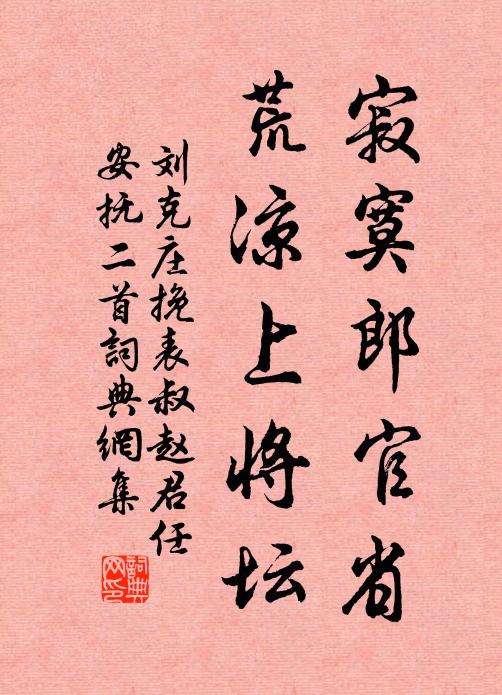 寂寞郎官省
荒凉上将坛
刘克庄挽表叔赵君任
安抚二首詞典網集
詞典
网印